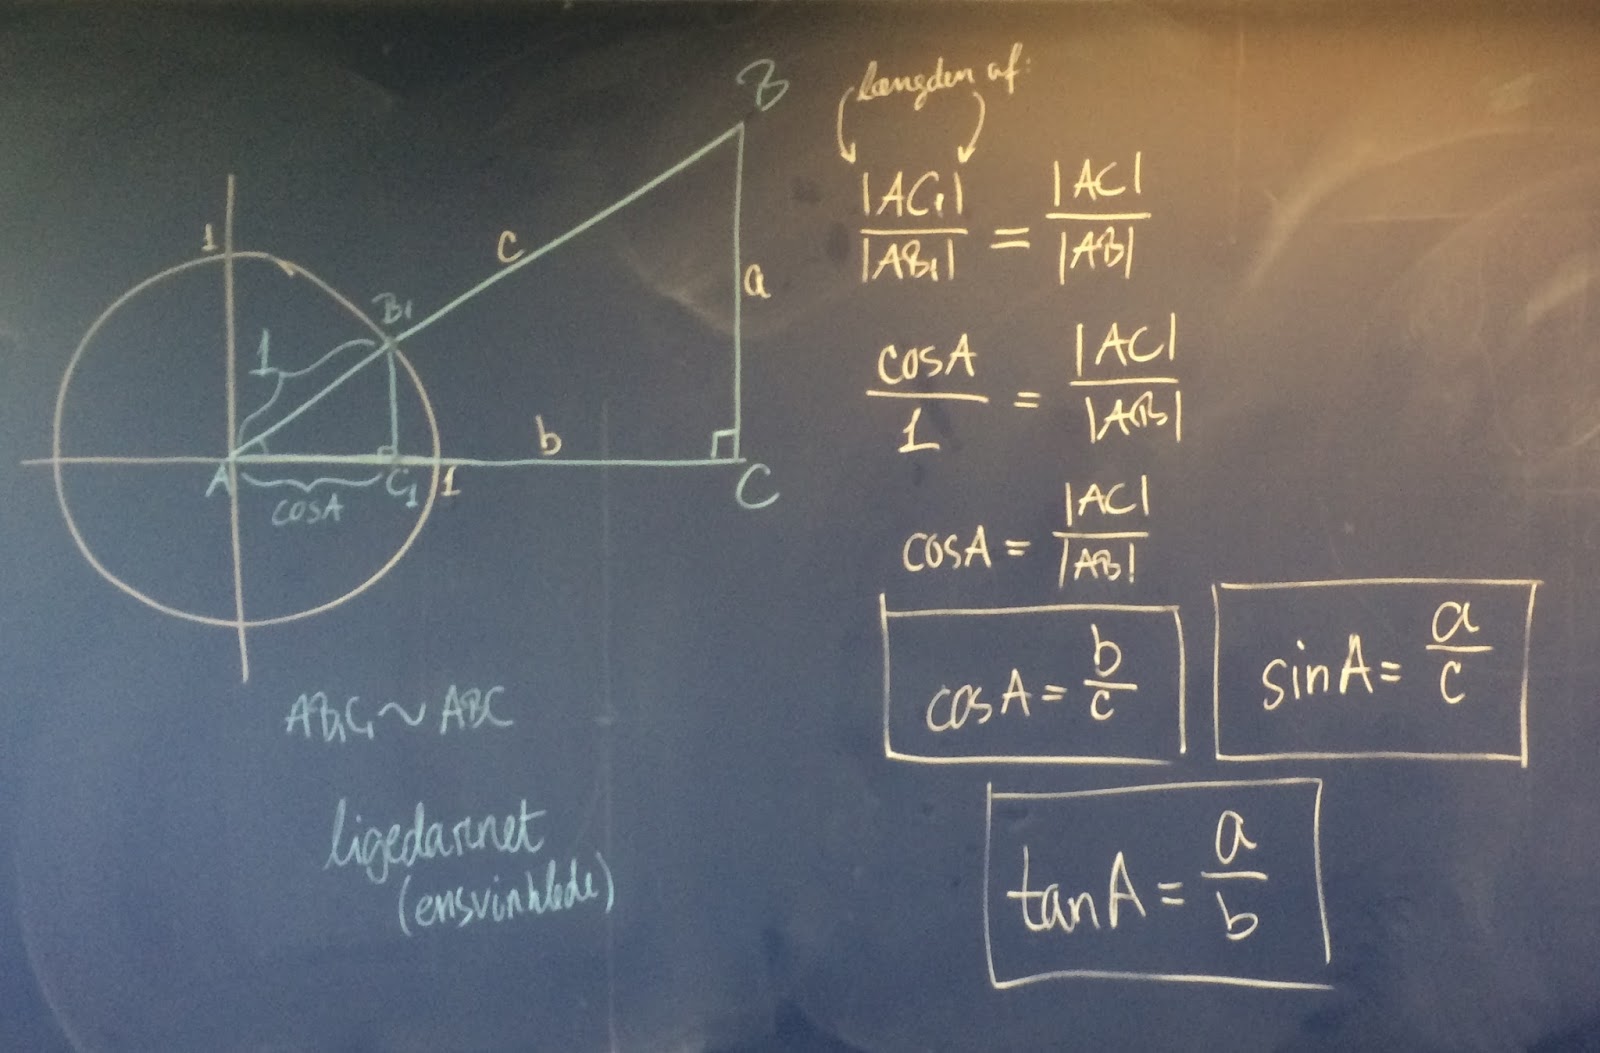 B
1
c
a
B₁
1
b
A
C₁
1
C
cosA
AB₁C₁ ~ ABC
ligedannet
(ensvinklede)
længden af:
|AC₁|/|AB₁| = |AC|/|AB|
cosA/1 = |AC|/|AB|
cosA = |AC|/|AB|
cosA = b/c
sinA = a/c
tanA = a/b